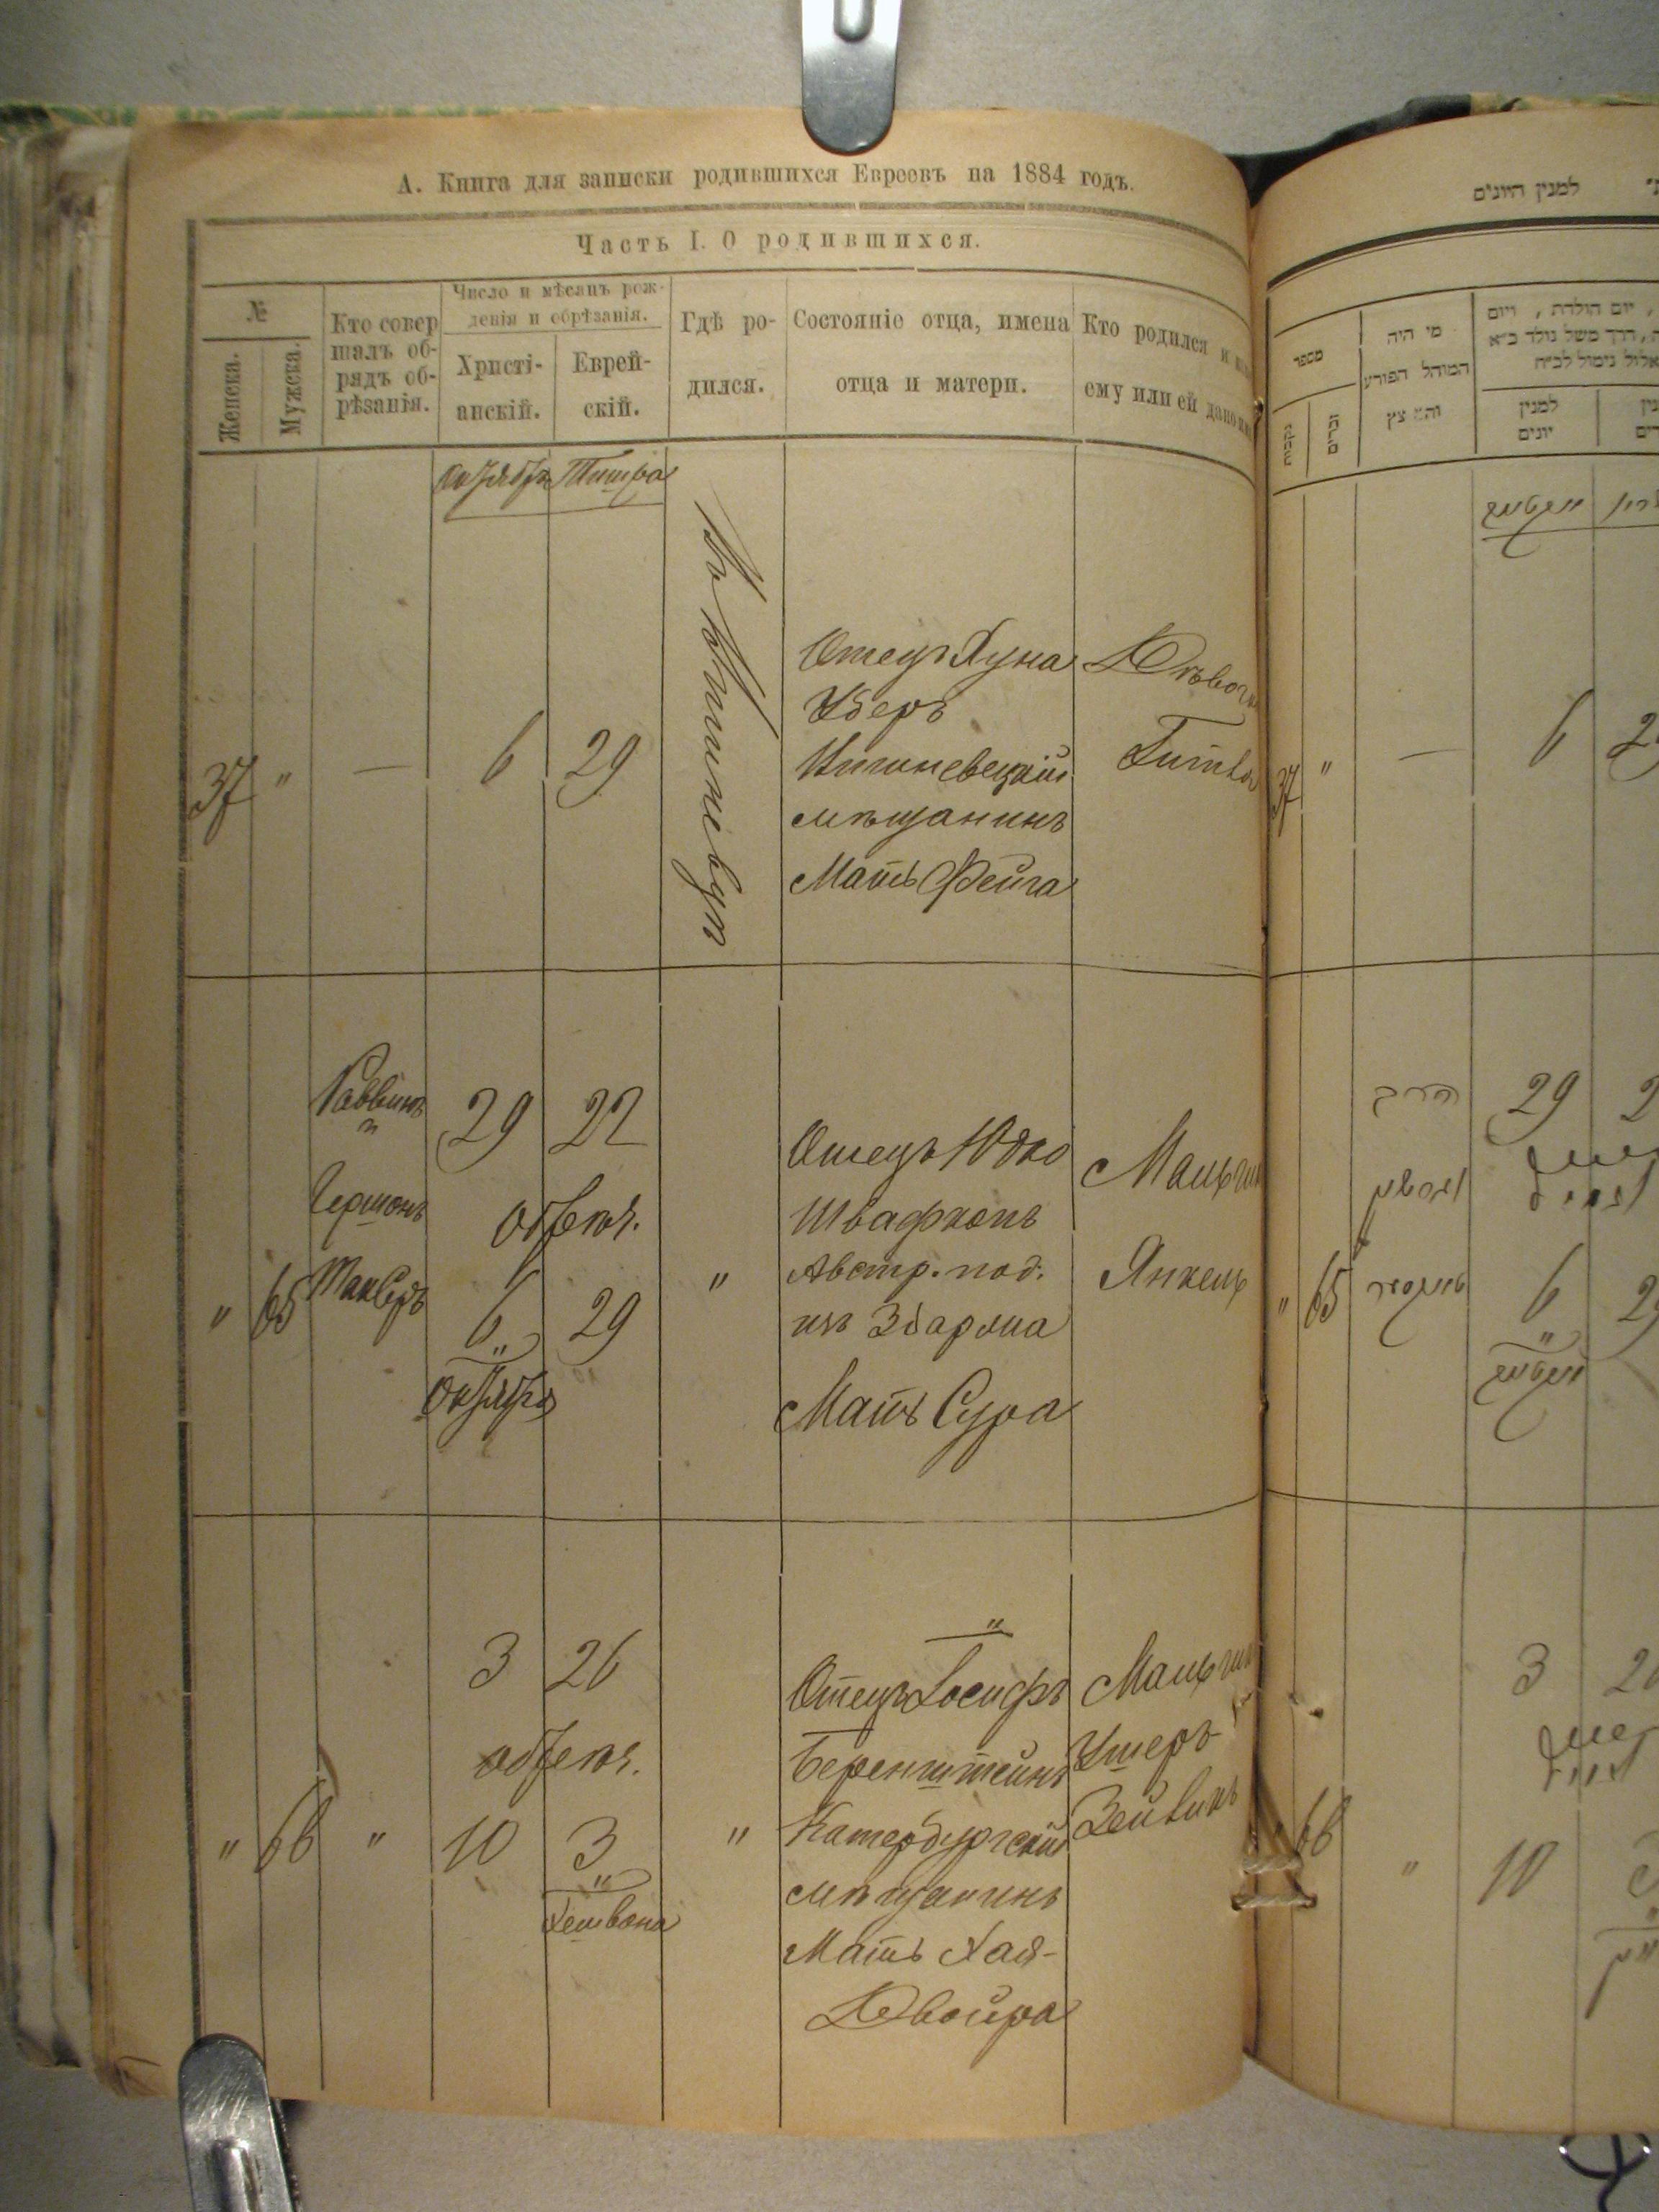 А. Книга для записки родившихся Евреевъ на 1884 годъ.
Часть I. О родившихся.
№
Женска.
Мужска.
Кто совер
шалъ об-
рядъ об-
рѣзанія.
Число и мѣсяцъ рож-
денія и обрѣзанія.
Христі-
анскій.
Еврей-
скій.
Гдѣ ро-
дился.
Состояніе отца, имена
отца и матери.
Кто родился и
ему или ей дано
Октябрь Тишра
37 " — 6 29
Въ Вишневцѣ
Отецъ Хуна
Уберъ
Вишневецкій
мѣщанинъ
Мать Фейга
Дѣвочка
Гитля
" 65
Раввинъ
и
Гершонъ
29 22
обрѣз.
6 29
"
Октября
"
Отецъ Юдко
Швафкопъ
Австр. под.
изъ Збаража
Мать Сура
Мальчи
Янкель
" 66 "
3 26
обрѣз.
10 3
"
Хешвана
"
"
Отецъ Іосифъ
Беренштейнъ
Катербургскій
мѣщанинъ
Мать Хая-
Двойра
Мальчи
Ушеръ-
Зейвикъ
למנין היונים
מספר
נקבות
זכרים
מי היה
המוהל הפורע
, יום הולדת , ויום
, דרך משל נולד כ״א
אלול נימול לכ״ח
למנין
יונים
37 " — 6
הרב
29
" 65
6
"
3
66 " 10